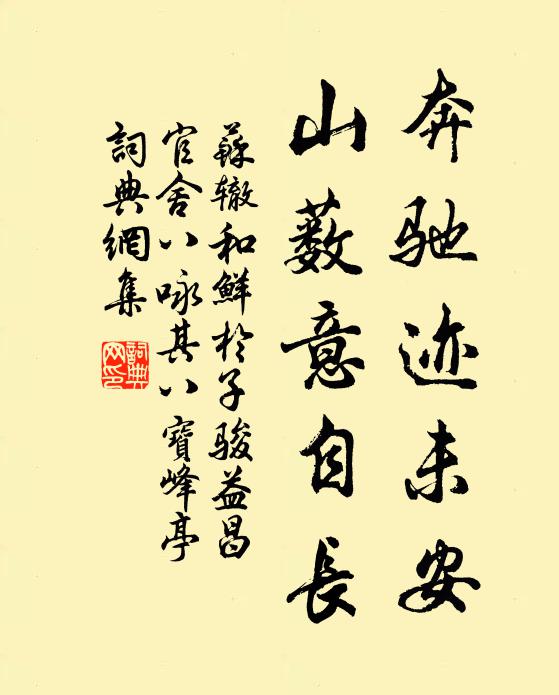 奔驰迹未安
山薮意自长
蘇辙和鮮於子骏益昌
官舍八咏其八寶峰亭
詞典網集
詞典网印